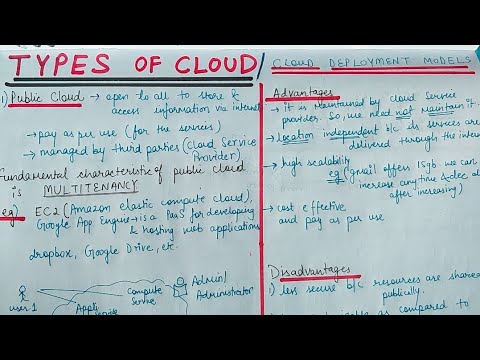 TYPES OF CLOUD / CLOUD DEPLOYMENT MODELS
1) Public Cloud → open to all to store &
access information via internet
→ pay as per use (for the services)
→ managed by third parties (Cloud Service
Provider)
Fundamental characteristic of public cloud
is MULTITENANCY
eg) EC2 (Amazon elastic compute cloud),
Google App Engine → is a PaaS for developing
& hosting web applications
dropbox, Google Drive, etc.
user 1
Compute
Service
Admin/
Administrator
Advantages
→ it is maintained by cloud service
provider. So, we need not maintain it.
→ location independent b/c its services are
delivered through the inter
→ high scalability
eg (gmail offers 15gb we can
increase anytime & dec al
after increasing)
→ cost effective
and pay as per use
Disadvantages
1) less secure b/c resources are share
publically.
as compared to